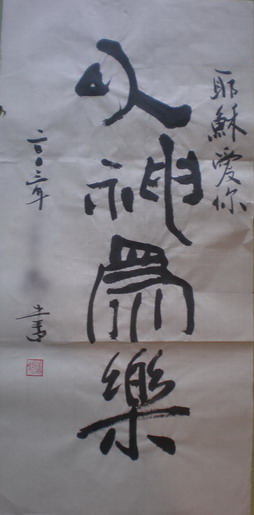 耶穌愛你
以神為樂
二〇〇三年
書